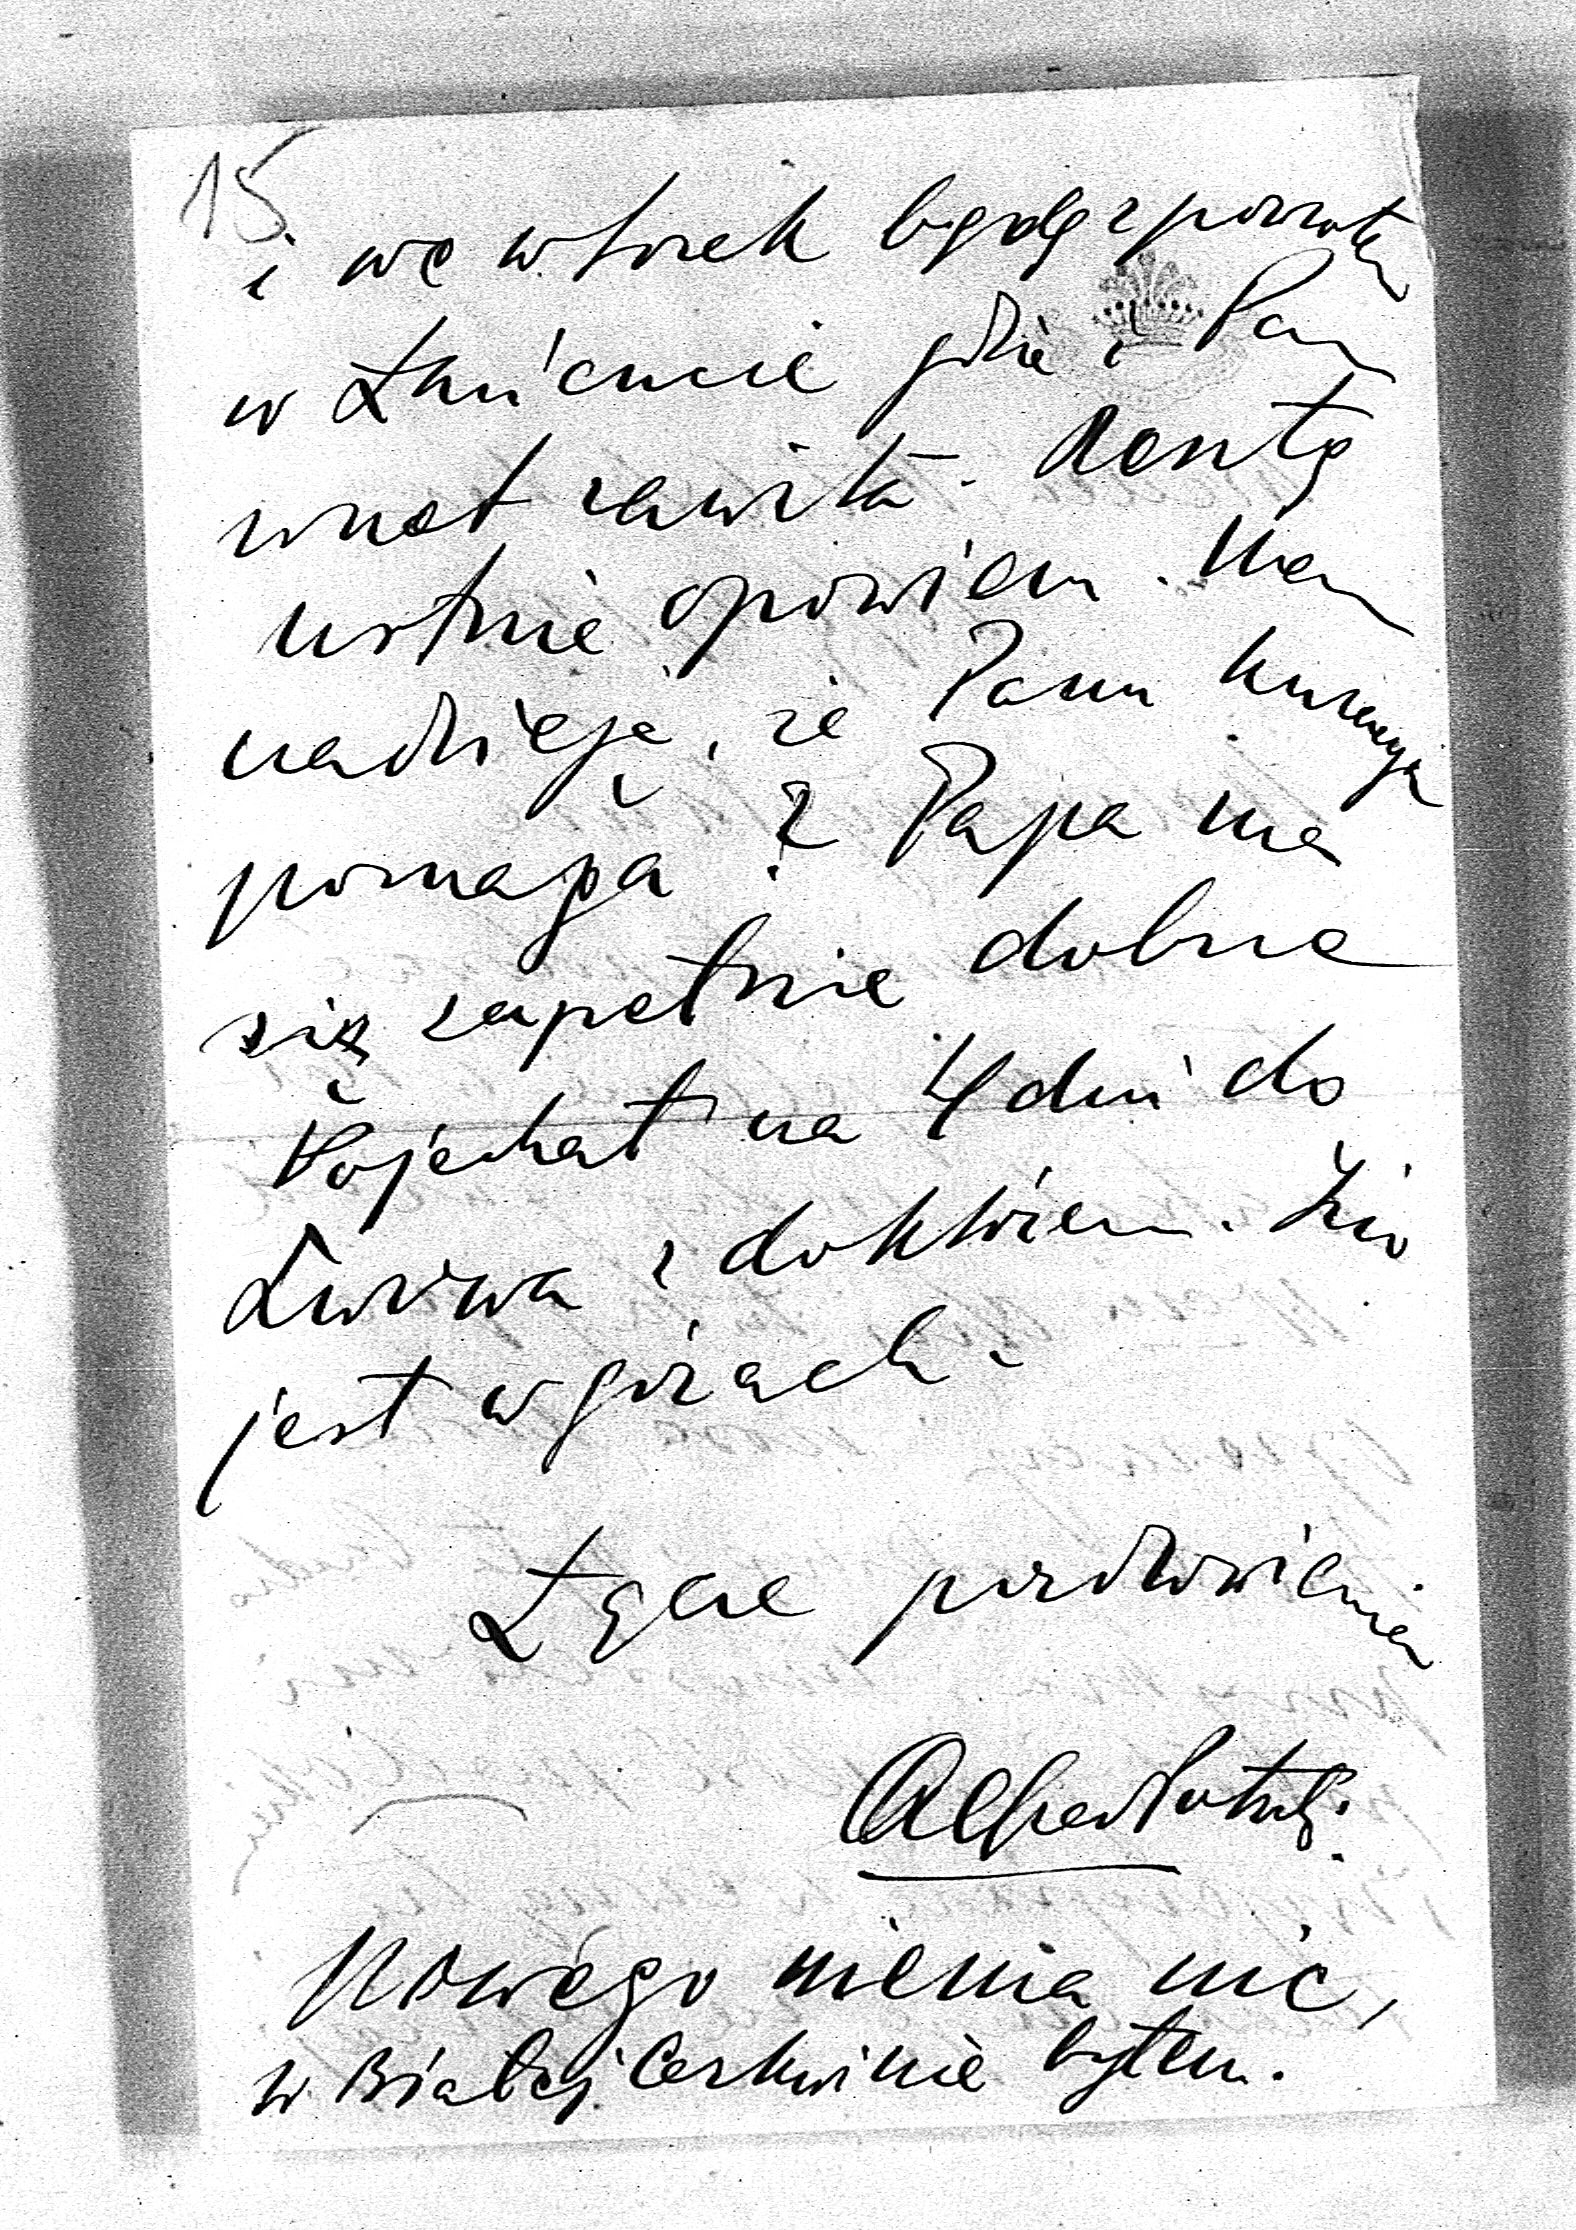 15
i we wtorek będę z powrotem
w Łańcucie gdzie i Pan
wnet zawita. Resztę
ustnie opowiem. Mam
nadzieję, że Panu kuracya
pomaga? Papa ma
się zupełnie dobrze
Pojechał na 4 dni do
Lwowa z doktorem.
jest w górach.
Łączę pozdrowienia
Alfred Potocki.
Nowego niema nic,
w Białej Cerkwi nie byłem.